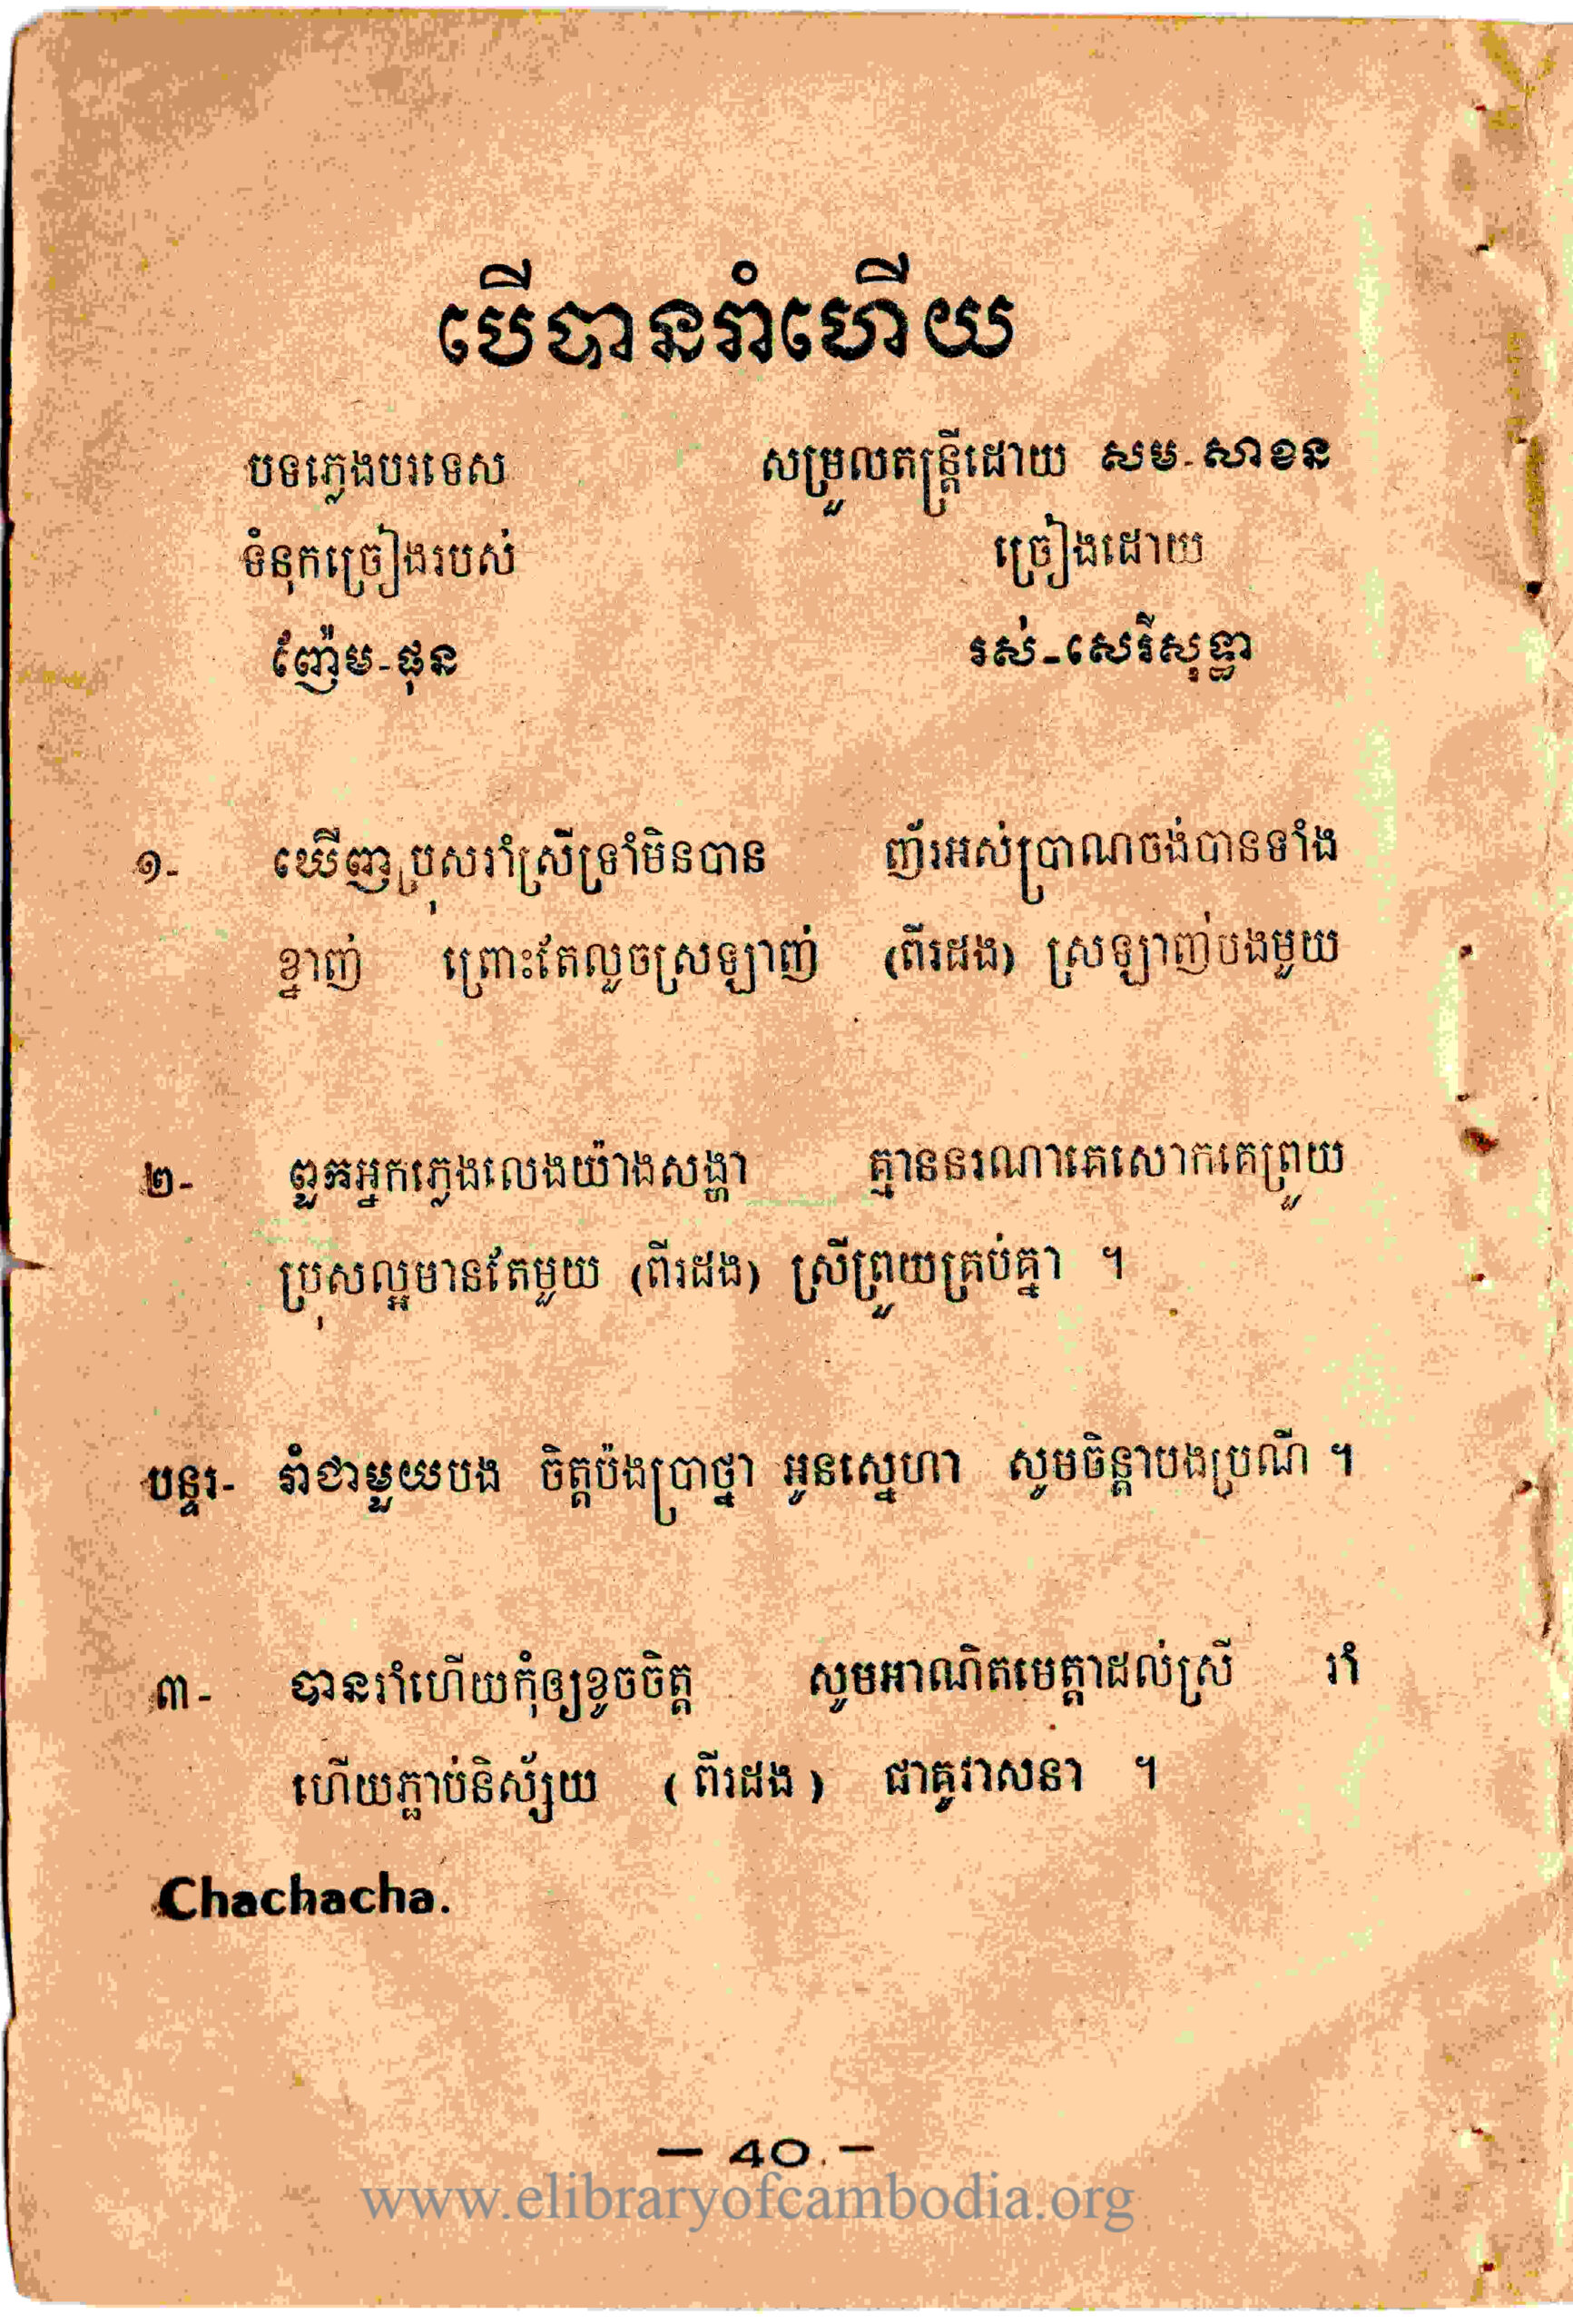 បើបានរាំហើយ
បទភ្លេងបរទេស សម្រួលតន្ត្រីដោយ សម-សាខន
ទំនុកច្រៀងរបស់ ច្រៀងដោយ
ញ៉ែម-ផុន រស់-សេរីសុទ្ធា
១- ឃើញប្រុសរាំស្រីទ្រាំមិនបាន ញ័រអស់ប្រាណចង់បានទាំង
ខ្នាញ់ ព្រោះតែលួចស្រឡាញ់ (ពីរដង) ស្រឡាញ់បងមួយ
២- ពួកអ្នកភ្លេងលេងយ៉ាងសង្ហា គ្មាននរណាគេសោកគេព្រួយ
ប្រុសល្អមានតែមួយ (ពីរដង) ស្រីព្រួយគ្រប់គ្នា ។
បន្ទរ- រាំជាមួយបង ចិត្តប៉ងប្រាថ្នា អូនស្នេហា សូមចិន្តាបងប្រណី ។
៣- បានរាំហើយកុំឲ្យខូចចិត្ត សូមអាណិតមេត្តាដល់ស្រី រាំ
ហើយភ្ជាប់និស្ស័យ (ពីរដង) ជាគូវាសនា ។
Chachacha.
— 40. —
www.elibraryofcambodia.org